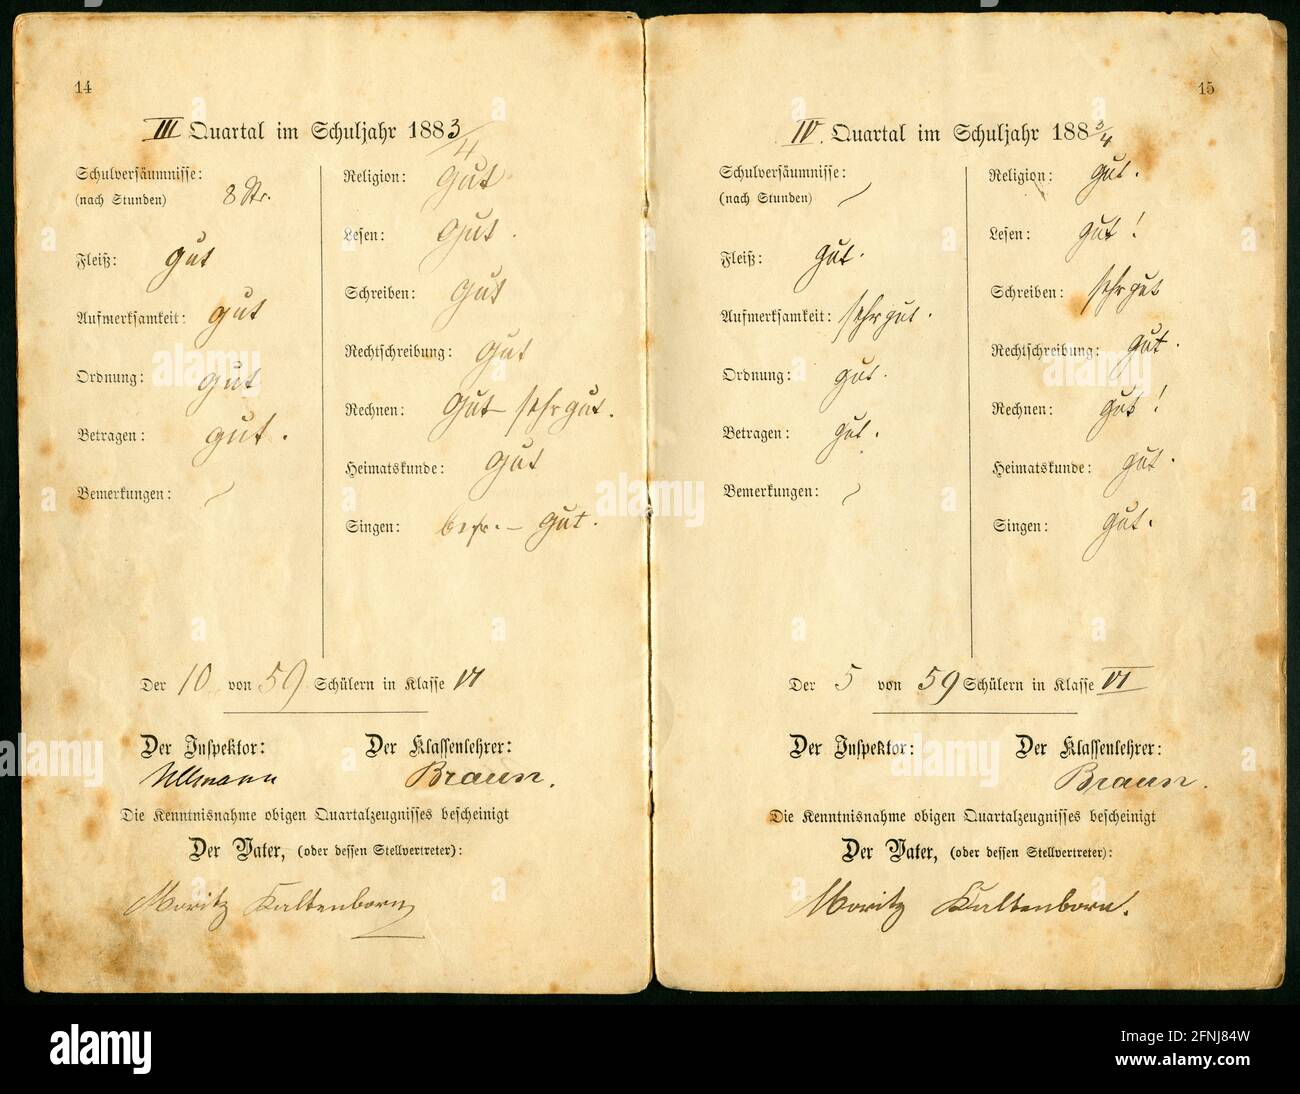 14
III Quartal im Schuljahr 1883/4
Schulversäumnisse:
(nach Stunden) 8 Str.
Fleiß: gut
Aufmerksamkeit: gut
Ordnung: gut
Betragen: gut.
Bemerkungen:
Religion: gut.
Lesen: gut.
Schreiben: gut
Rechtschreibung: gut
Rechnen: gut – sehr gut.
Heimatskunde: gut
Singen: befr. – gut.
Der 10 von 59 Schülern in Klasse VI
Der Inspektor: Der Klassenlehrer:
Ullmann Braun.
Die Kenntnisnahme obigen Quartalzeugnisses bescheinigt
Der Vater, (oder dessen Stellvertreter):
Moritz Kaltenborn
15
IV. Quartal im Schuljahr 1883/4
Schulversäumnisse:
(nach Stunden)
Fleiß: gut.
Aufmerksamkeit: sehr gut.
Ordnung: gut.
Betragen: gut.
Bemerkungen:
Religion: gut.
Lesen: gut!
Schreiben: sehr gut
Rechtschreibung: gut.
Rechnen: gut!
Heimatskunde: gut.
Singen: gut.
Der 5 von 59 Schülern in Klasse VI
Der Inspektor: Der Klassenlehrer:
Braun.
Die Kenntnisnahme obigen Quartalzeugnisses bescheinigt
Der Vater, (oder dessen Stellvertreter):
Moritz Kaltenborn.
alamy
alamy
Image ID: 2FNJ84W
www.alamy.com